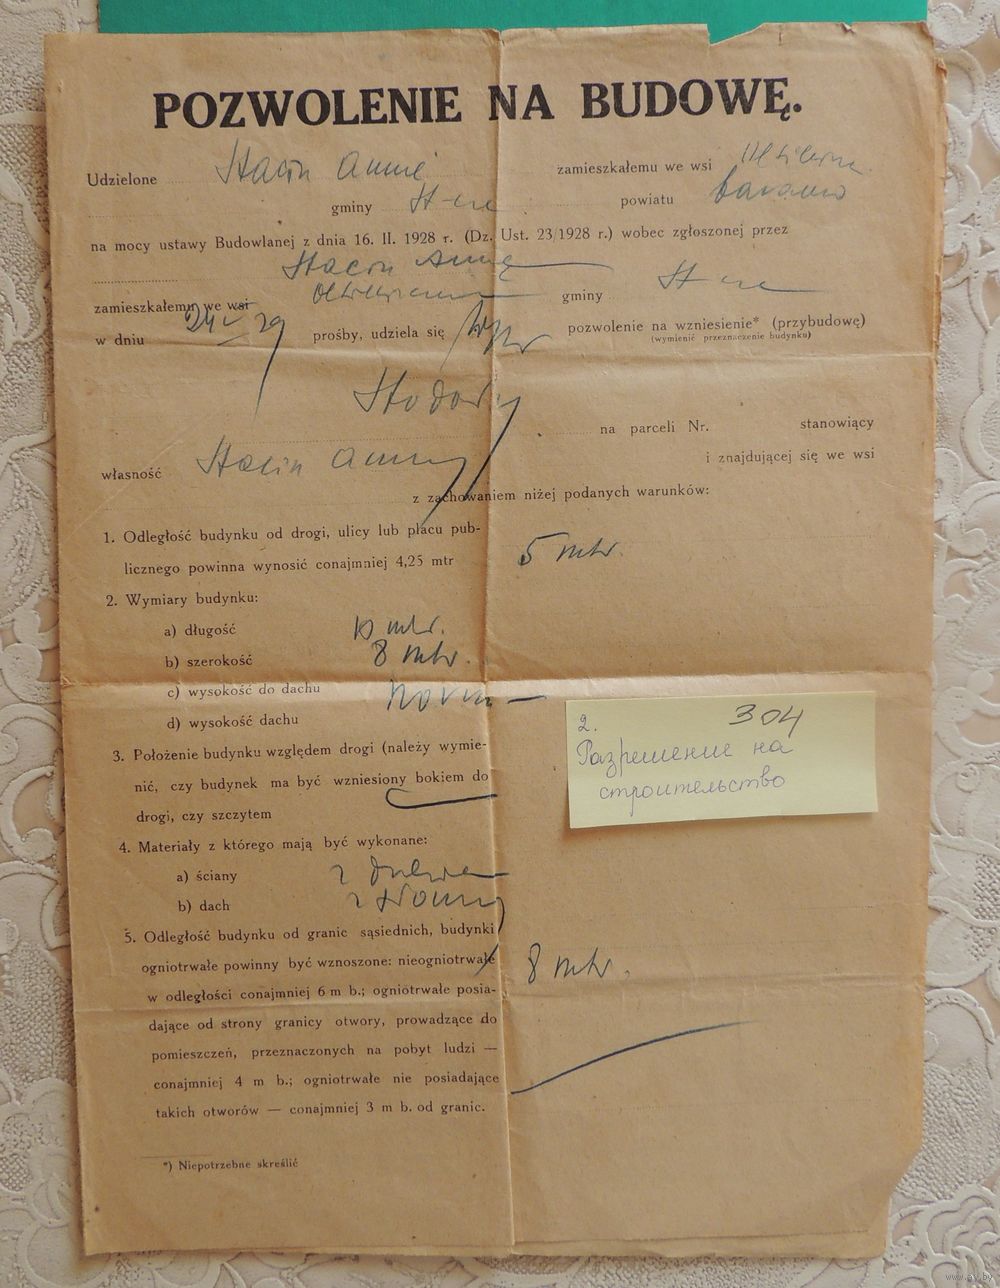 POZWOLENIE NA BUDOWĘ.
Udzielone Annie zamieszkałemu we wsi
gminy powiatu
na mocy ustawy Budowlanej z dnia 16. II. 1928 r. (Dz. Ust. 23/1928 r.) wobec zgłoszonej przez
Annę
zamieszkałemu we wsi gminy
w dniu prośby, udziela się pozwolenie na wzniesienie* (przybudowę)
(wymienić przeznaczenie budynku)
Stodoły
na parceli Nr. stanowiący
własność Anny i znajdującej się we wsi
z zachowaniem niżej podanych warunków:
1. Odległość budynku od drogi, ulicy lub placu pub-
licznego powinna wynosić conajmniej 4,25 mtr 5 mtr.
2. Wymiary budynku:
a) długość 10 mtr.
b) szerokość 8 mtr.
c) wysokość do dachu
d) wysokość dachu
3. Położenie budynku względem drogi (należy wymie-
nić, czy budynek ma być wzniesiony bokiem do
drogi, czy szczytem
4. Materiały z którego mają być wykonane:
a) ściany z drzewa
b) dach z słomy
5. Odległość budynku od granic sąsiednich, budynki
ogniotrwałe powinny być wznoszone: nieogniotrwałe 8 mtr.
w odległości conajmniej 6 m b.; ogniotrwałe posia-
dające od strony granicy otwory, prowadzące do
pomieszczeń, przeznaczonych na pobyt ludzi —
conajmniej 4 m b.; ogniotrwałe nie posiadające
takich otworów — conajmniej 3 m b. od granic.
*) Niepotrzebne skreślić
2. 304
Разрешение на
строительство
www.ay.by